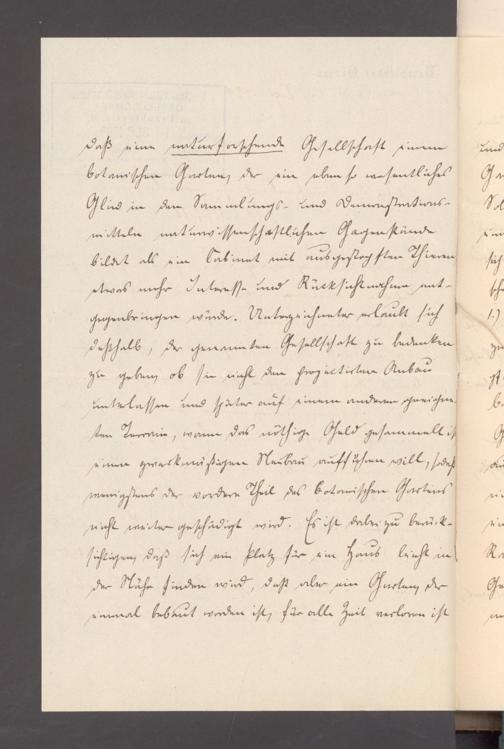 daß eine naturforschende Gesellschaft einem
botanischen Garten, der ein ebenso wesentliches
Glied in den Sammlungs- und Demonstrations-
mitteln naturwissenschaftlichen Gegenstände
bildet als ein Cabinet mit ausgestopften Thieren
etwas mehr Interesse und Rücksichtnahme ent-
gegenbringen würde. Unterzeichneter erlaubt sich
deßhalb, der genannten Gesellschaft zu bedenken
zu geben, ob sie nicht den projectirten Anbau
unterlassen und später auf einem anderen geeigne-
ten Terrain, wenn das nöthige Geld gesammelt ist
einen zweckmäßigen Neubau aufführen will, sodaß
wenigstens der vordere Theil des botanischen Gartens
nicht weiter geschädigt wird. Es ist dabei zu berück-
sichtigen, daß sich ein Platz für ein Haus leicht in
der Nähe finden wird, daß aber ein Garten, der
einmal bebaut worden ist, für alle Zeit verloren ist